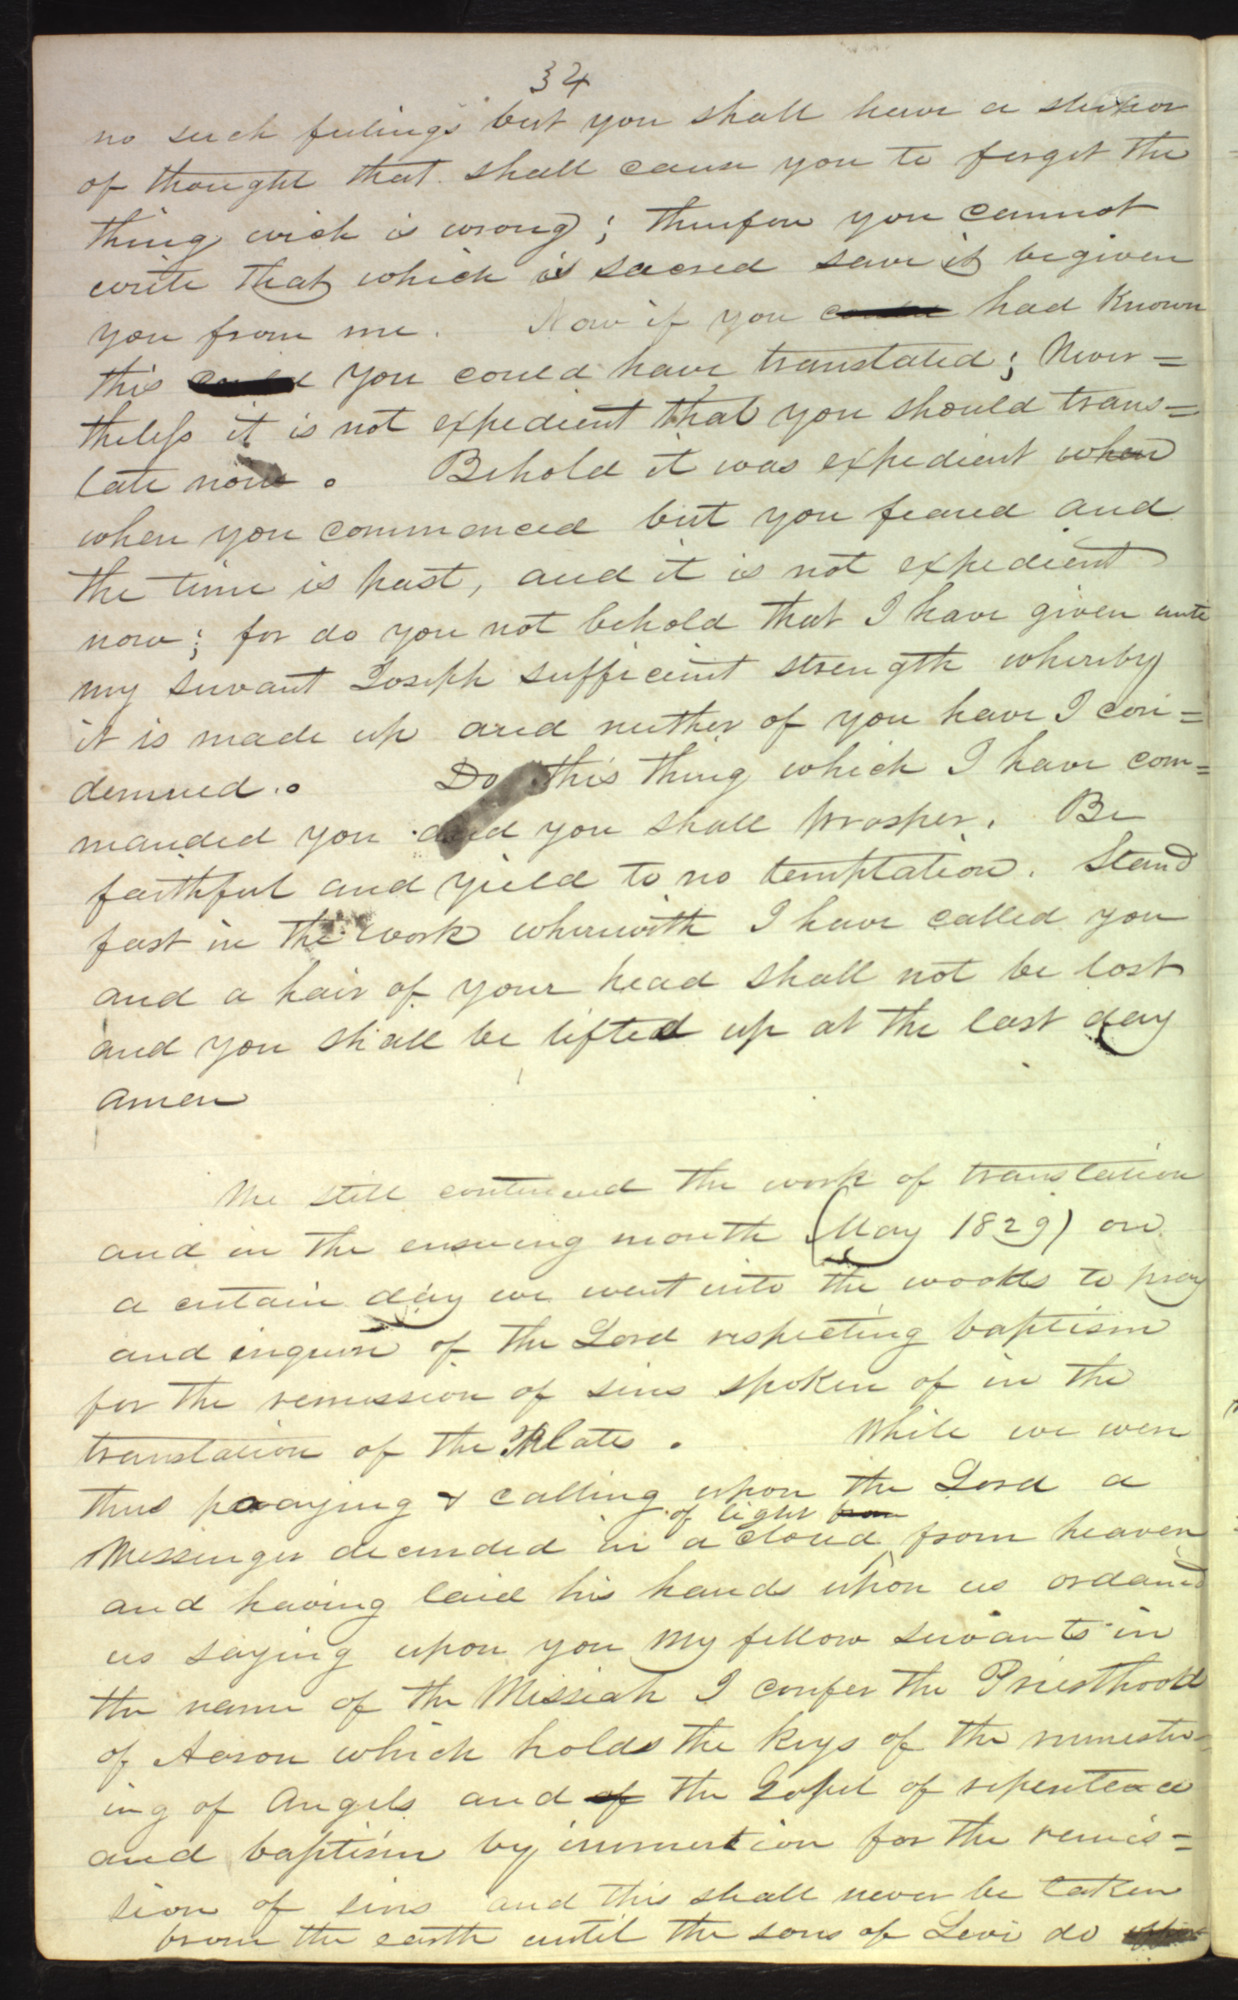 34
no such feelings but you shall have a stupor
of thought that shall cause you to forget the
thing wich is wrong; therefore you cannot
write that which is sacred save it be given
you from me. Now if you could had known
this could you could have translated; Never=
theless it is not expedient that you should trans=
late now. Behold it was expedient when
when you commenced but you feared and
the time is past, and it is not expedient
now; for do you not behold that I have given unto
my servant Joseph sufficient strength whereby
it is made up and neither of you have I con=
demned. Do this thing which I have com=
manded you and you shall prosper. Be
faithful and yield to no temptation. Stand
fast in the work wherewith I have called you
and a hair of your head shall not be lost
and you shall be lifted up at the last day
amen
We still continued the work of translation
and in the ensuing month (May 1829) on
a certain day we went into the woods to pray
and inquire of the Lord respecting baptism
for the remission of sins spoken of in the
translation of the Plate. While we were
thus praying & calling upon the Lord a
of light from
Messenger decended in a cloud from heaven
and having laid his hands upon us ordained
us saying upon you my fellow servants in
the name of the Messiah I confer the Priesthood
of Aaron which holds the keys of the minester-
ing of Angels and of the Gospel of repentence
and baptism by immertion for the remis=
sion of sins and this shall never be taken
from the earth until the sons of Levi do